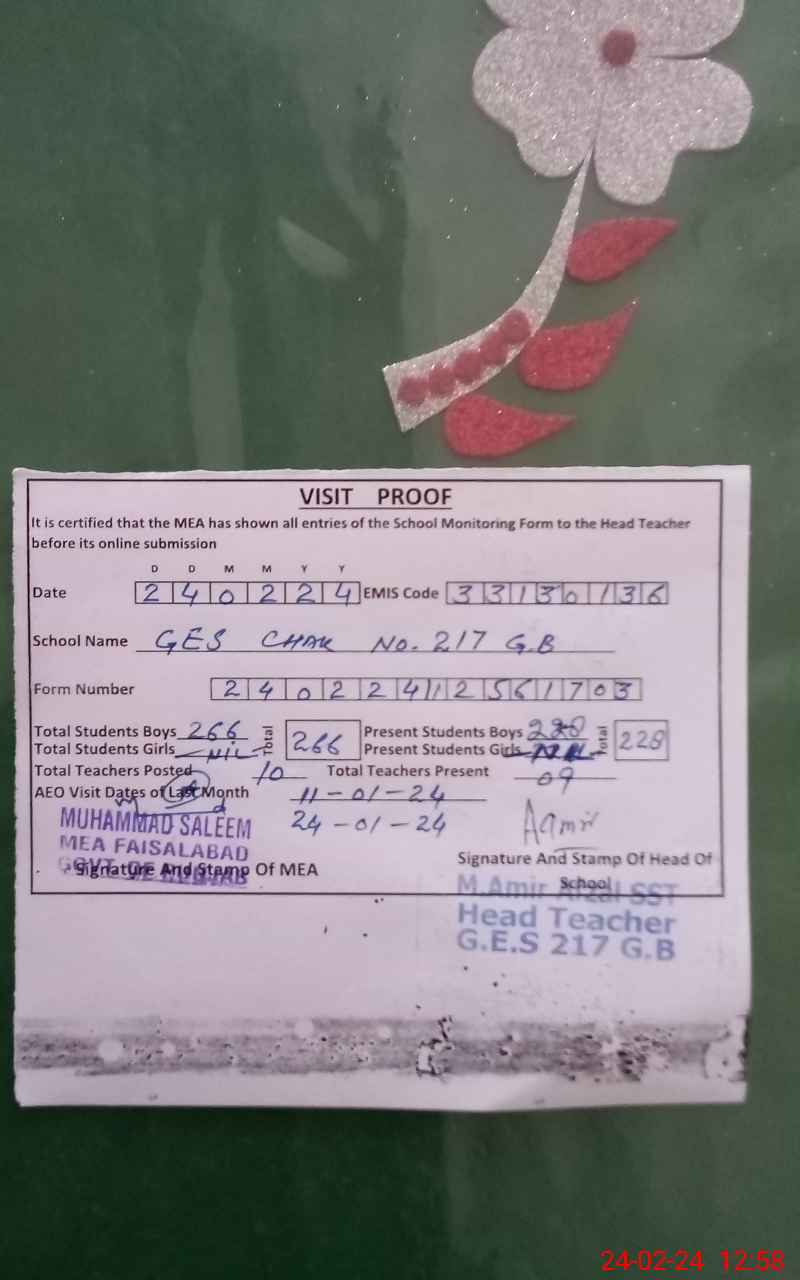 VISIT PROOF
It is certified that the MEA has shown all entries of the School Monitoring Form to the Head Teacher
before its online submission
D D M M Y Y
Date 240224 EMIS Code 33130136
School Name GES CHAK NO. 217 G.B
Form Number 2402241256 1703
Total Students Boys 266 Total 266 Present Students Boys 228 Total 228
Total Students Girls Nil Present Students Girls Nil
Total Teachers Posted 10 Total Teachers Present 09
AEO Visit Dates of Last Month 11-01-24
24-01-24
MUHAMMAD SALEEM
MEA FAISALABAD
GOVT. OF PUNJAB
Aamir
Signature And Stamp Of MEA
Signature And Stamp Of Head Of
School
M.Amir Afzal SST
Head Teacher
G.E.S 217 G.B
24-02-24 12:58